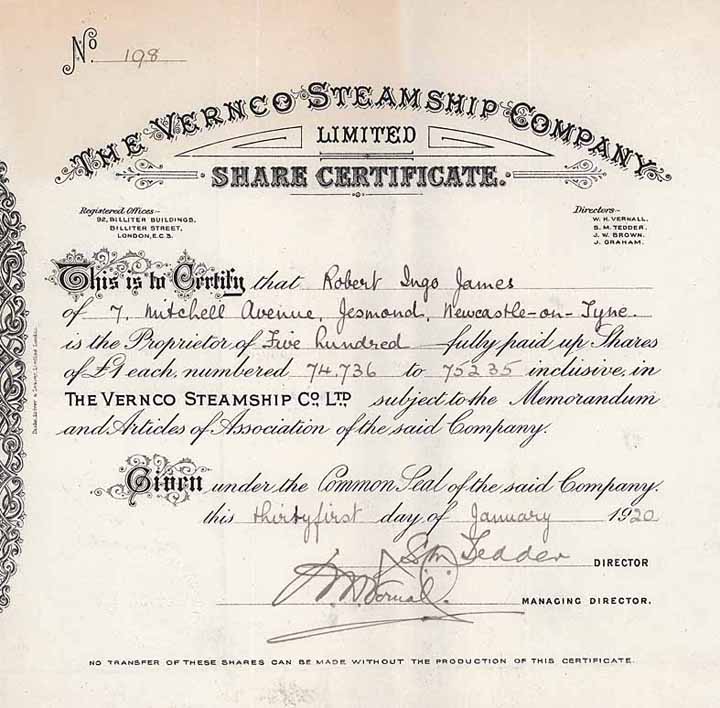 No. 198
THE VERNCO STEAMSHIP COMPANY
LIMITED
SHARE CERTIFICATE.
Registered Offices:-
92, BILLITER BUILDINGS,
BILLITER STREET,
LONDON, E.C.3.
Directors:-
W. H. VERNALL.
S. M. TEDDER.
J. W. BROWN.
J. GRAHAM.
This is to Certify that Robert Ingo James
of 7, Mitchell Avenue, Jesmond, Newcastle-on-Tyne.
is the Proprietor of Five hundred fully paid up Shares
of £1 each, numbered 74,736 to 75235 inclusive, in
THE VERNCO STEAMSHIP CO., LTD., subject to the Memorandum
and Articles of Association of the said Company.
Given under the Common Seal of the said Company.
this thirtyfirst day of January 1920
S. M. Tedder DIRECTOR
MANAGING DIRECTOR.
NO TRANSFER OF THESE SHARES CAN BE MADE WITHOUT THE PRODUCTION OF THIS CERTIFICATE.